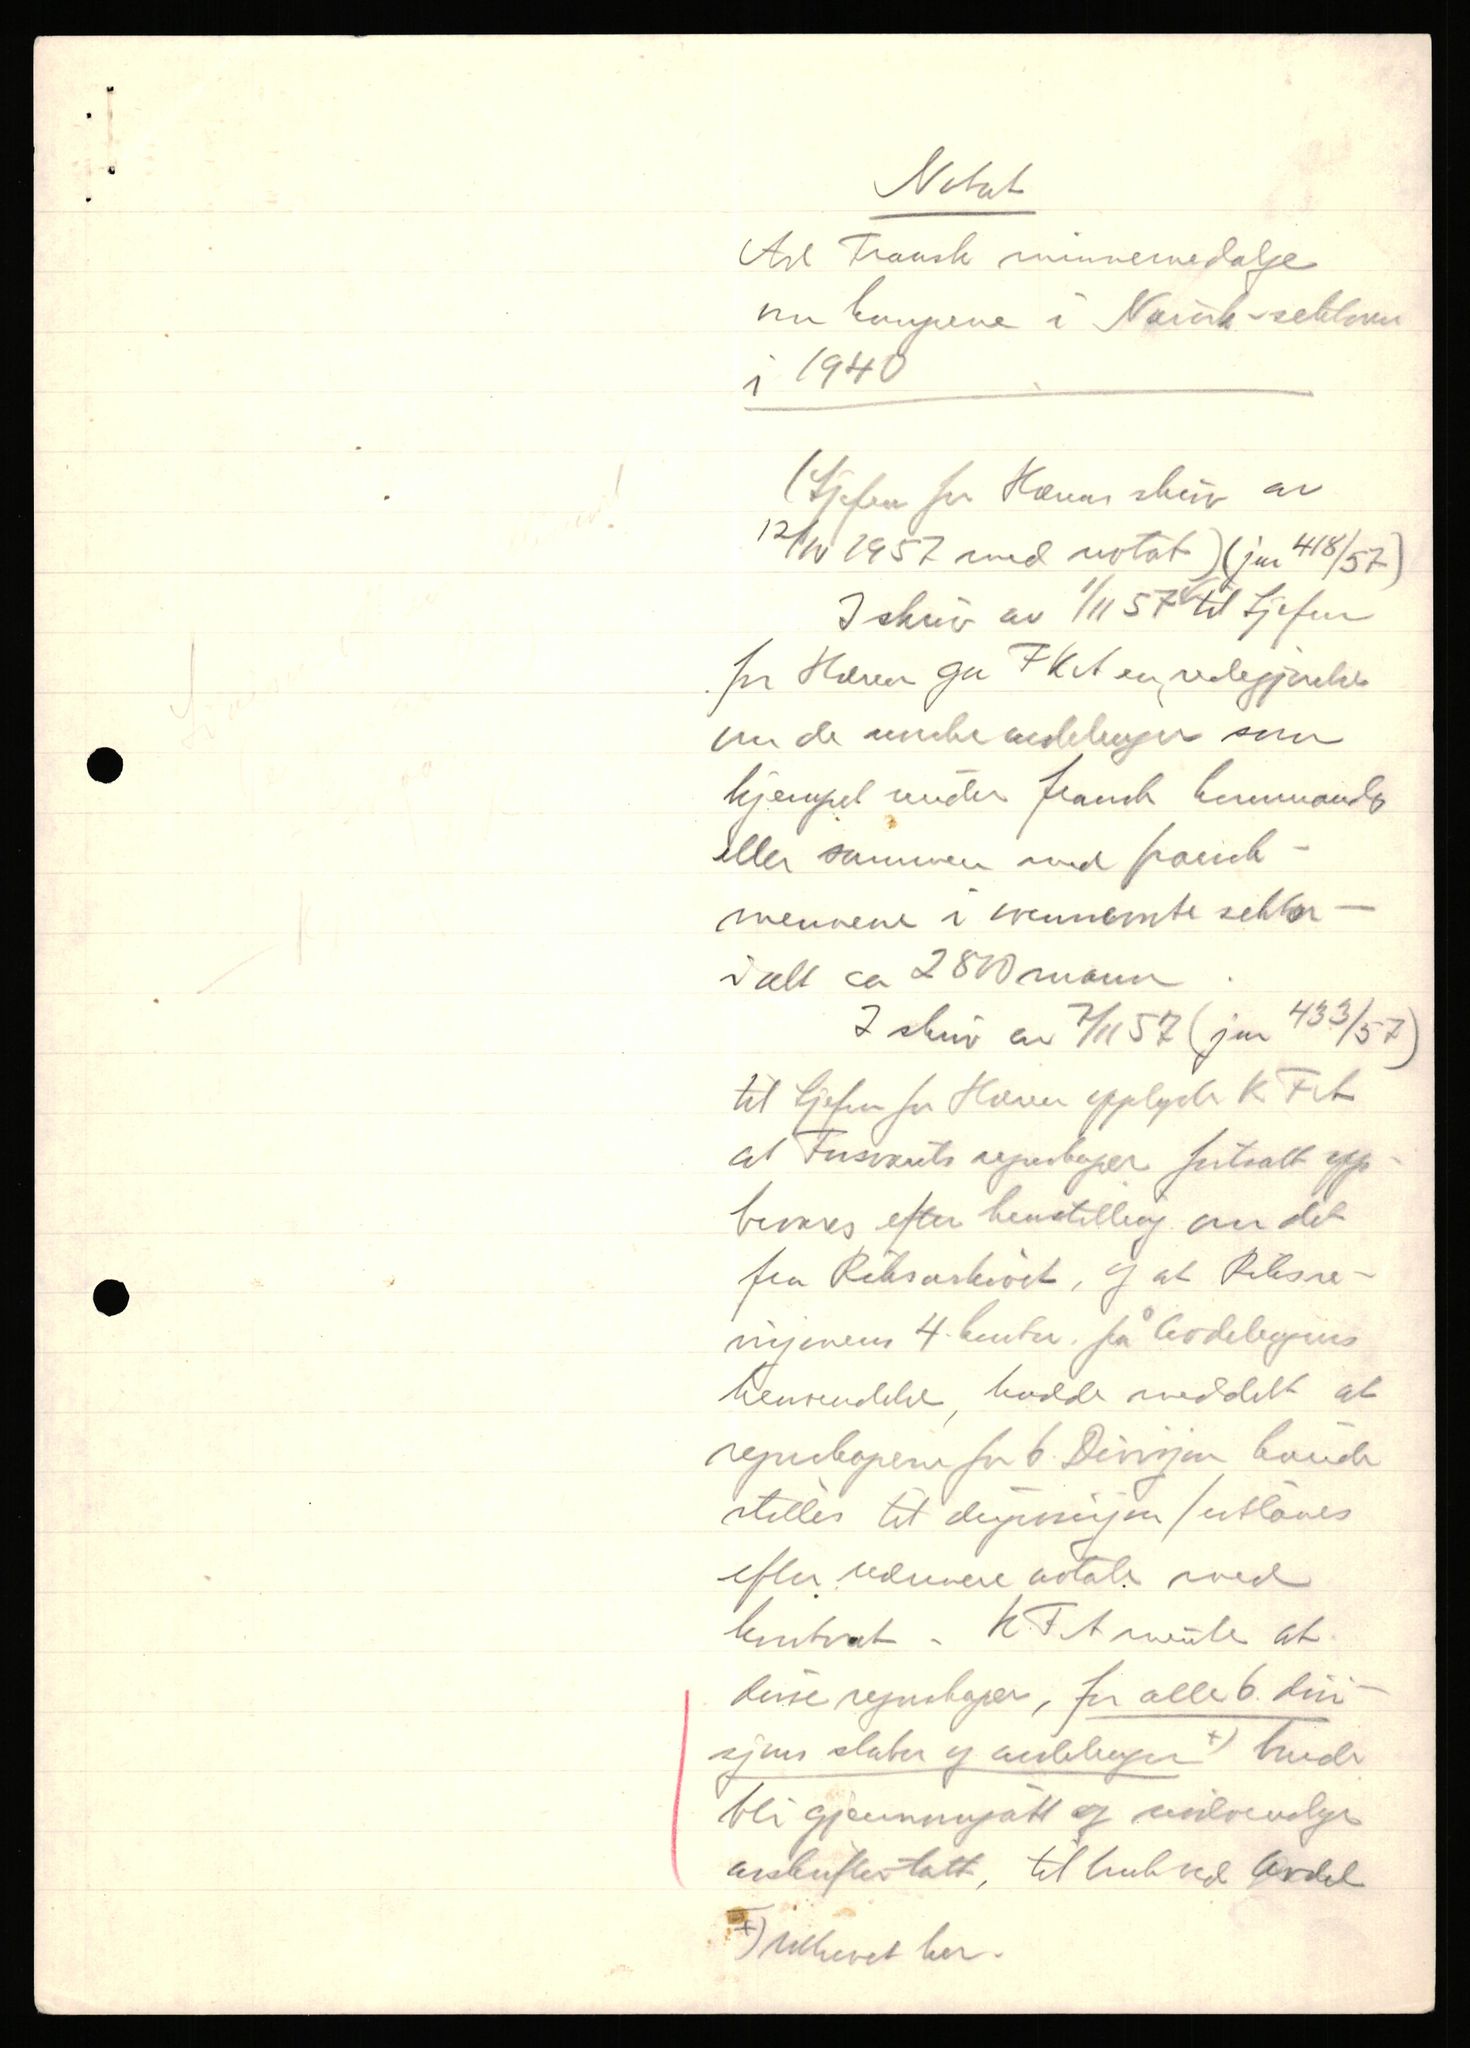 Notat
Ad Fransk minnemedalje
om kampene i Narvik-sektoren
i 1940
(Sjefen for Hærens skriv av
12/IV 1957 med notat) (jnr 418/57)
I skriv av 1/11 57 til Sjefen
for Hæren ga FKA en redegjørelse
om de norske avdelinger som
kjempet under fransk kommando
eller sammen med fransk-
mennene i ovennevnte sektor -
i alt ca 2800 mann.
I skriv av 7/11 57 (jnr 433/57)
til Sjefen for Hæren opplyste KFA
at Forsvarets regnskaper fortsatt opp-
bevares efter henstilling om det
fra Riksarkivet, og at Riksre-
visjonens 4. kontor, på Avdelingens
henvendelse, hadde meddelt at
regnskapene for 6. Divisjon kunde
stilles til disposisjon/utlånes
efter nærmere avtale med
kontoret. KFA mente at
disse regnskaper, for alle 6. divi-
sjons staber og avdelinger +) burde
bli gjennomgått og nødvendige
avskrifter tatt, til bruk ved Avdel
+) Uthevet her.